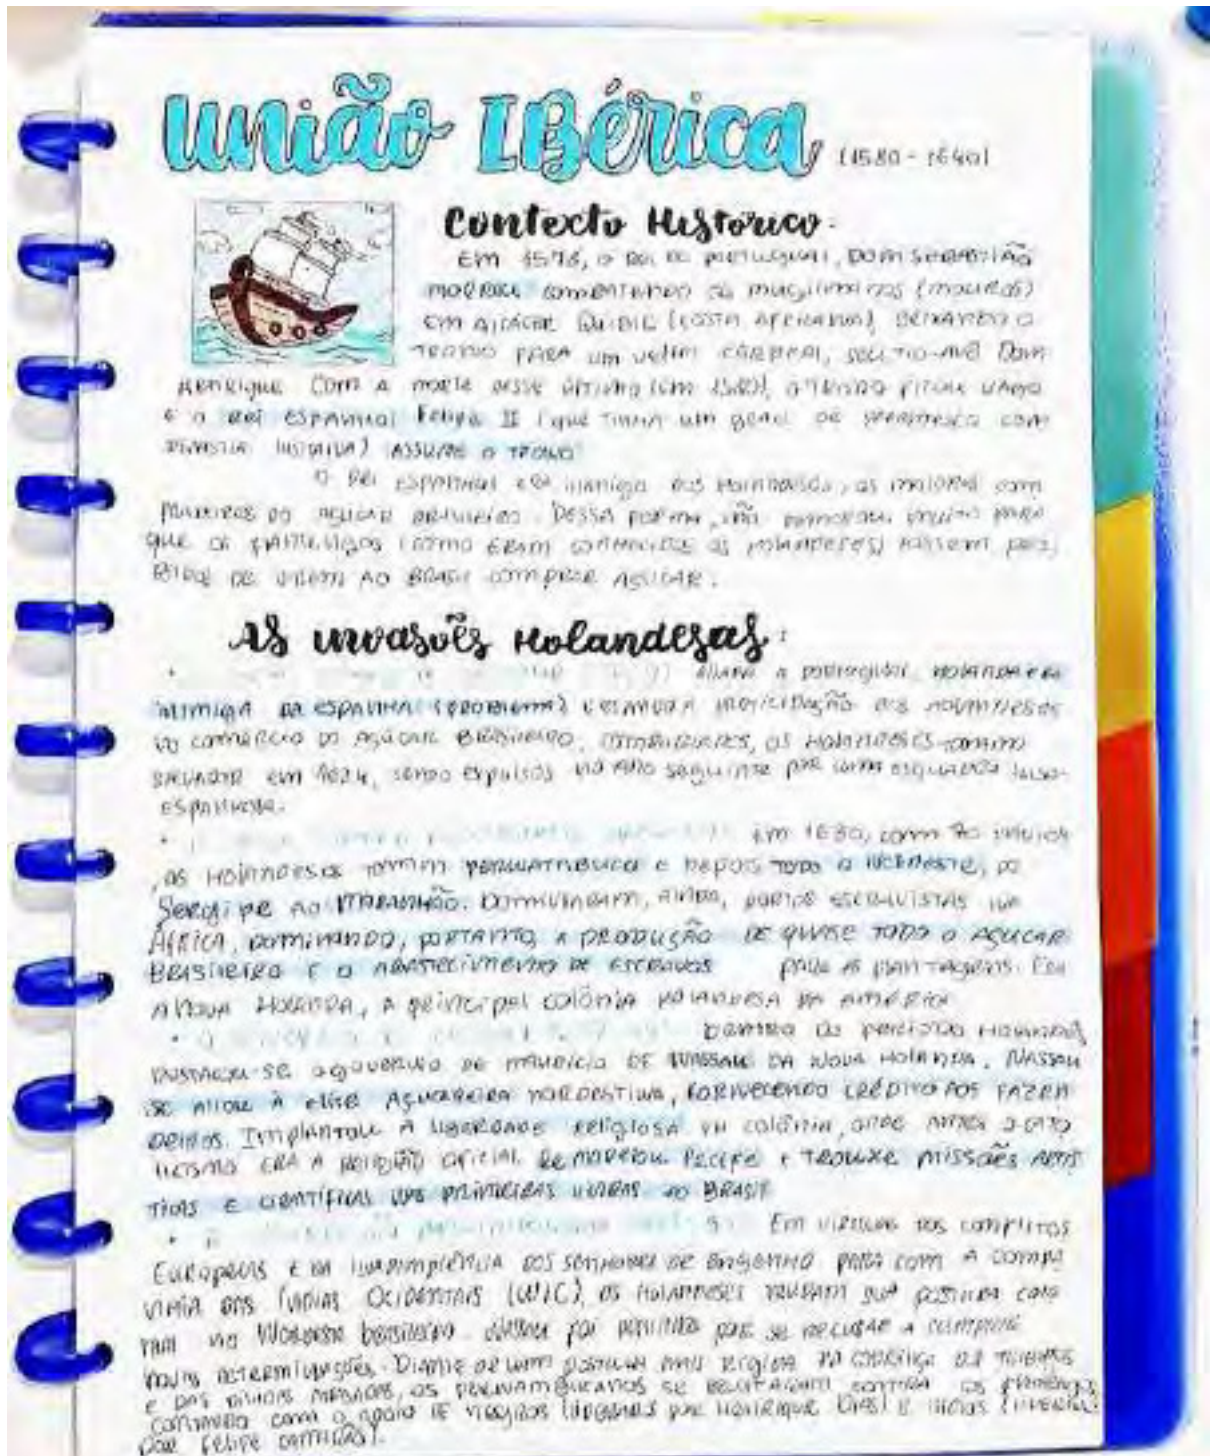 União Ibérica (1580 - 1640)
Contexto Histórico:
Em 1578, o rei de Portugal, Dom Sebastião
morreu combatendo os muçulmanos (mouros)
em Alcácer Quibir (costa africana), deixando o
trono para um velho cardeal, seu tio-avô Dom
Henrique. Com a morte desse último (em 1580), o trono ficou vago
e o rei espanhol Felipe II (que tinha um grau de parentesco com
dinastia ) assume o trono
O rei espanhol era inimigo dos holandeses, os maiores com
pradores do açúcar brasileiro. Dessa forma, não demorou muito para
que os flamengos (como eram conhecidos os holandeses) fossem proi
bidos de virem ao Brasil comprar açúcar.
As invasões Holandesas:
• aliada a Portugal, Holanda era
inimiga da Espanha (problema) vetando a participação dos holandeses
no comércio do açúcar brasileiro. os holandeses tomam
Salvador em 1624, sendo expulsos no ano seguinte por uma esquadra luso-
espanhola.
• Em 1630, com 70 navios
, os holandeses tomam Pernambuco e depois todo o Nordeste, do
Sergipe ao Maranhão. Dominaram, ainda, portos escravistas na
África, dominando, portanto, a produção de quase todo o açúcar
brasileiro e o abastecimento de escravos para as plantagens. Era
a Nova Holanda, a principal colônia holandesa da América
• Dentro do período holandês,
destaca-se o governo de Maurício de Nassau da Nova Holanda. Nassau
se aliou à elite açucareira nordestina, fornecendo crédito aos fazen
deiros. Implantou a liberdade religiosa na colônia, onde antes o cato
licismo era a religião oficial. Remodelou Recife e trouxe missões artís
ticas e científicas nas primeiras vindas ao Brasil
• Em virtude dos conflitos
Europeus e da inadimplência dos senhores de engenho para com a Compa
nhia das Índias Ocidentais (WIC), os holandeses mudam sua postura com
no Nordeste brasileiro. Nassau foi demitido por se recusar a cumprir
novas determinações. Diante de uma postura mais rígida na cobrança de
e das dívidas os pernambucanos se contra os flamengos
com o apoio de negros (liderados por Henrique Dias) e índios
por Felipe Camarão).